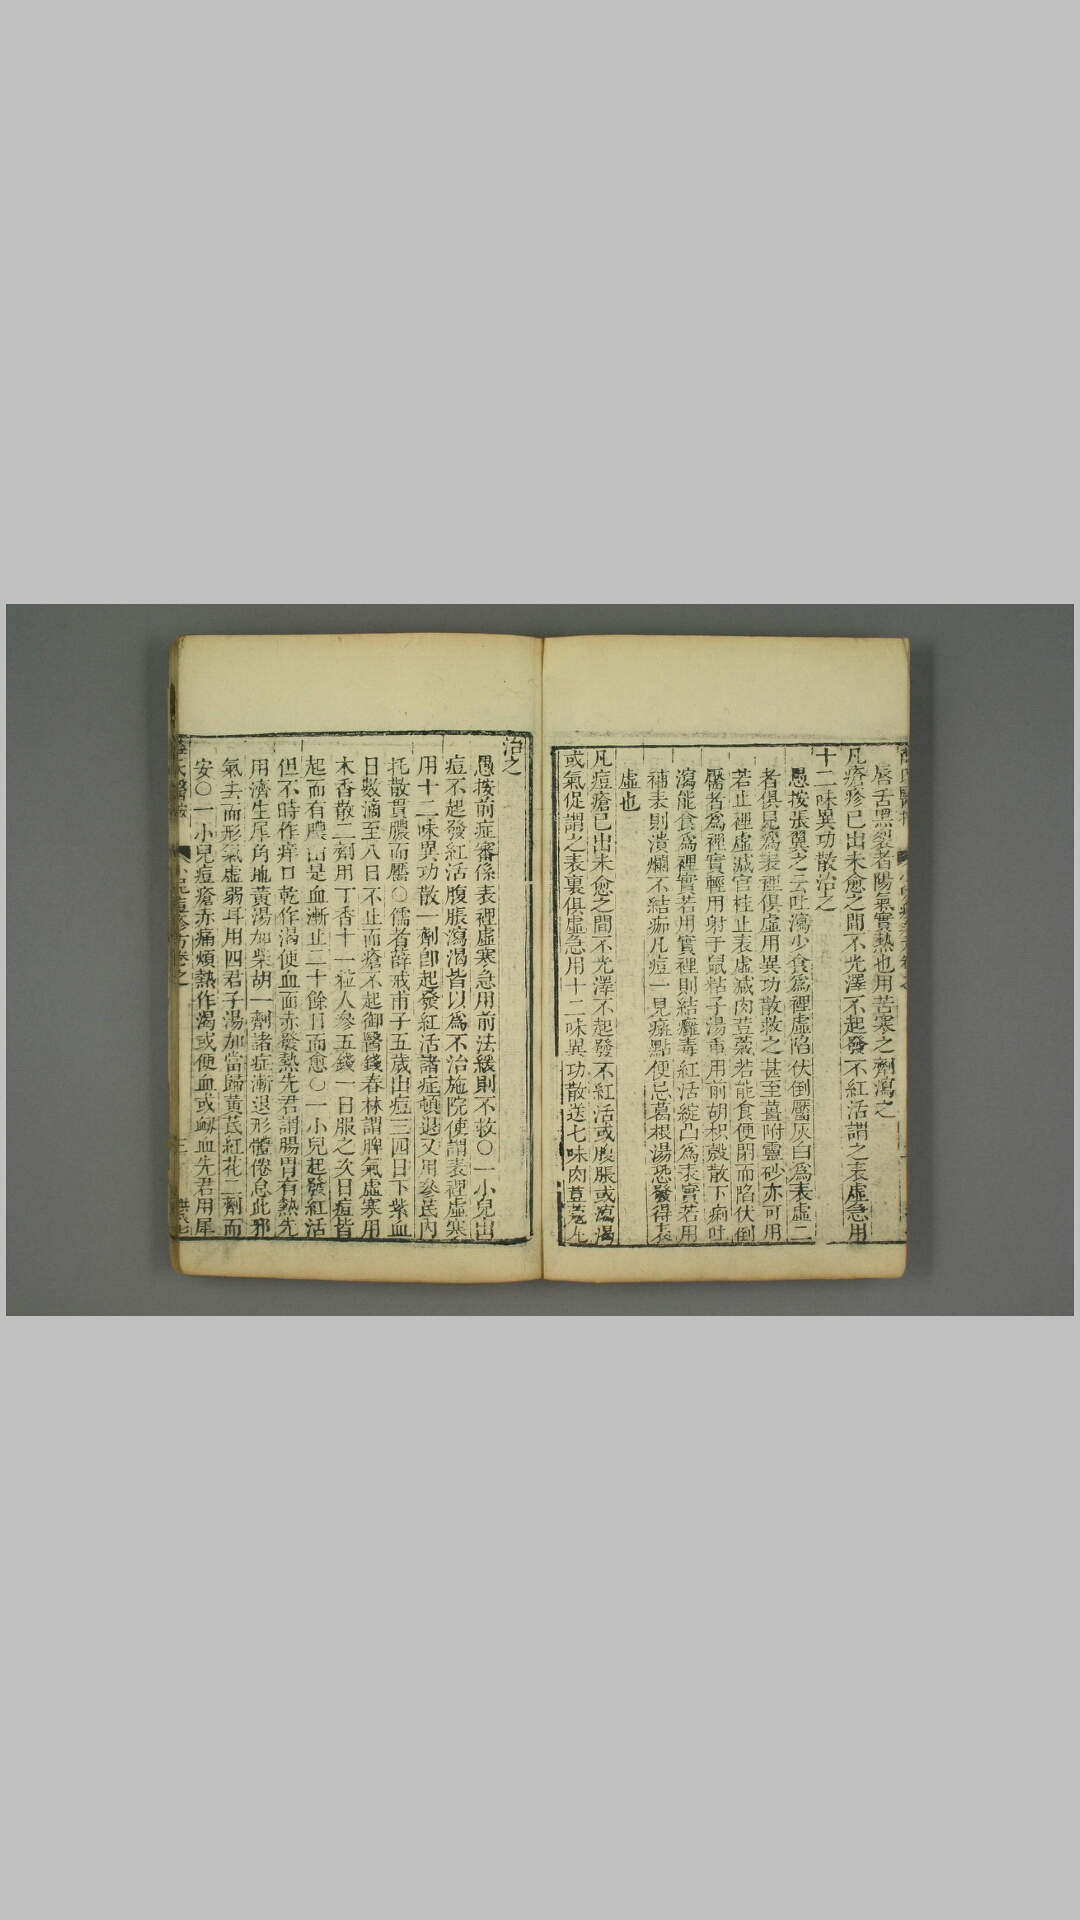 唇舌黑裂者陽氣實熱也用苦寒之劑瀉之
凡瘡疹已出未愈之間不光澤不起發不紅活謂之表虛急用
十二味異功散治之
愚按張翼之云吐瀉少食爲裡虛陷伏倒靨灰白爲表虛二
者俱見爲表裡俱虛用異功散救之甚至薑附靈砂亦可用
若止裡虛減官桂止表虛減肉荳蔻若能食便閉而陷伏倒
靨者爲裡實輕用射干鼠粘子湯重用前胡枳殼散下痢吐
瀉能食爲裡實若用實裡則結癰毒紅活綻凸爲表實若用
補表則潰爛不結痂凡痘一見癍點便忌葛根湯恐發得表
虛也
凡痘瘡已出未愈之間不光澤不起發不紅活或腹脹或瀉渴
或氣促謂之表裏俱虛急用十二味異功散送七味肉荳蔻丸
治之
愚按前症審係表裡虛寒急用前法緩則不救○一小兒出
痘不起發紅活腹脹瀉渴皆以爲不治施院使謂表裡虛寒
用十二味異功散一劑卽起發紅活諸症頓退又用參芪內
托散貫膿而靨○儒者薛戒甫子五歲出痘三四日下紫血
日數滴至八日不止而瘡不起御醫錢春林謂脾氣虛寒用
木香散二劑用丁香十一粒人參五錢一日服之次日痘皆
起而有膿由是血漸止二十餘日而愈○一小兒起發紅活
但不時作痒口乾作渴便血面赤發熱先君謂腸胃有熱先
用濟生犀角地黃湯加柴胡一劑諸症漸退形體倦怠此邪
氣去而形氣虛弱耳用四君子湯加當歸黃芪紅花二劑而
安○一小兒痘瘡赤痛煩熱作渴或便血或衂血先君用犀
薛氏醫按 小兒痘疹方卷之 三